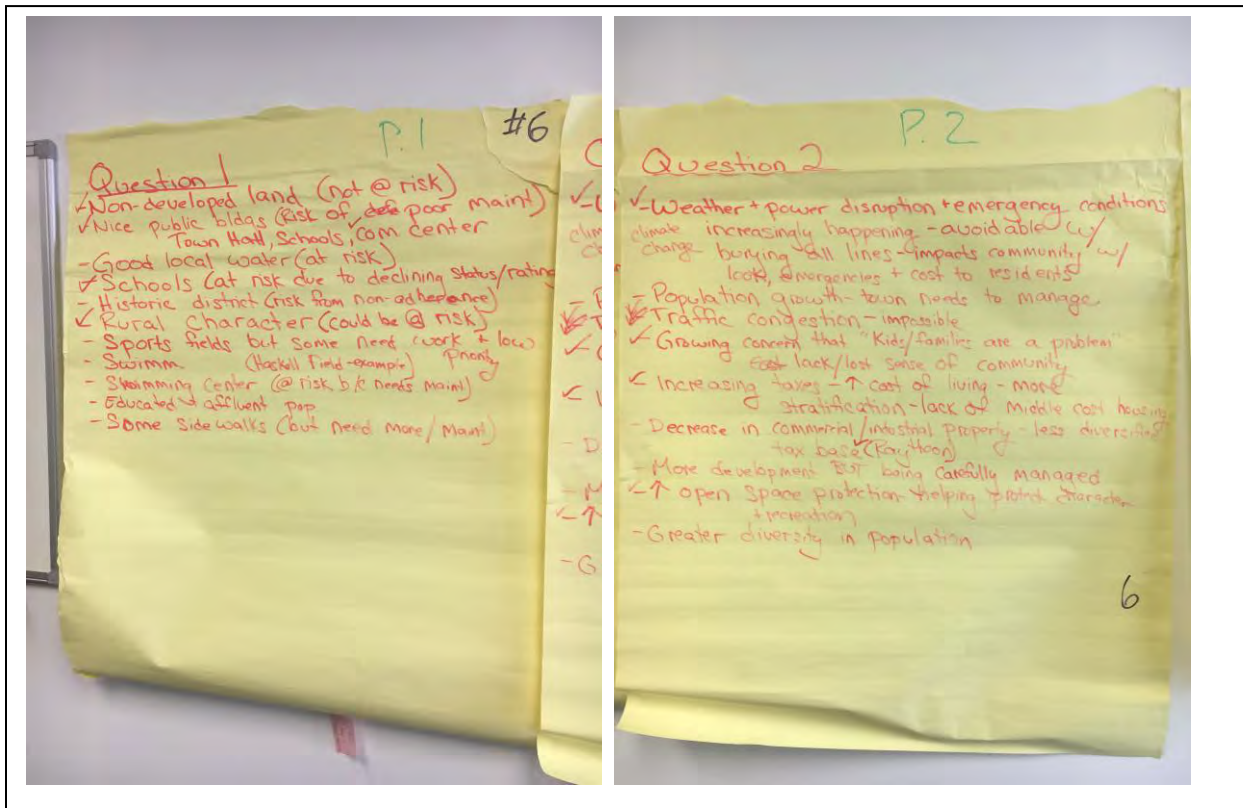 P.1
#6
Question 1
✓Non-developed land (not @ risk)
✓Nice public bldgs (Risk of poor maint)
Town Hall, Schools, com center
- Good local water (at risk)
✓Schools (at risk due to declining status/rating
- Historic district (risk from non-adherence)
✓ Rural Character (could be @ risk)
- Sports fields but some need work + low
- Swimm. (Haskell Field-example) Priority
- Swimming center (@ risk b/c needs maint)
- Educated + affluent pop
- Some sidewalks (but need more/maint)
P.2
Question 2
✓-Weather + power disruption + emergency conditions
climate increasingly happening - avoidable w/
change burying all lines - impacts community w/
look, emergencies + cost to residents
- Population growth - town needs to manage
Traffic congestion - impossible
✓ - Growing concern that "Kids/families are a problem"
lack/lost sense of community
✓ Increasing taxes - ↑ cost of living - more
stratification - lack of middle cost housing
- Decrease in commercial/intustrial property - less diversified
tax base (Raytheon)
- More development BUT being carefully managed
✓-↑ open space protection - helping protect character
+ recreation
- Greater diversity in population
6